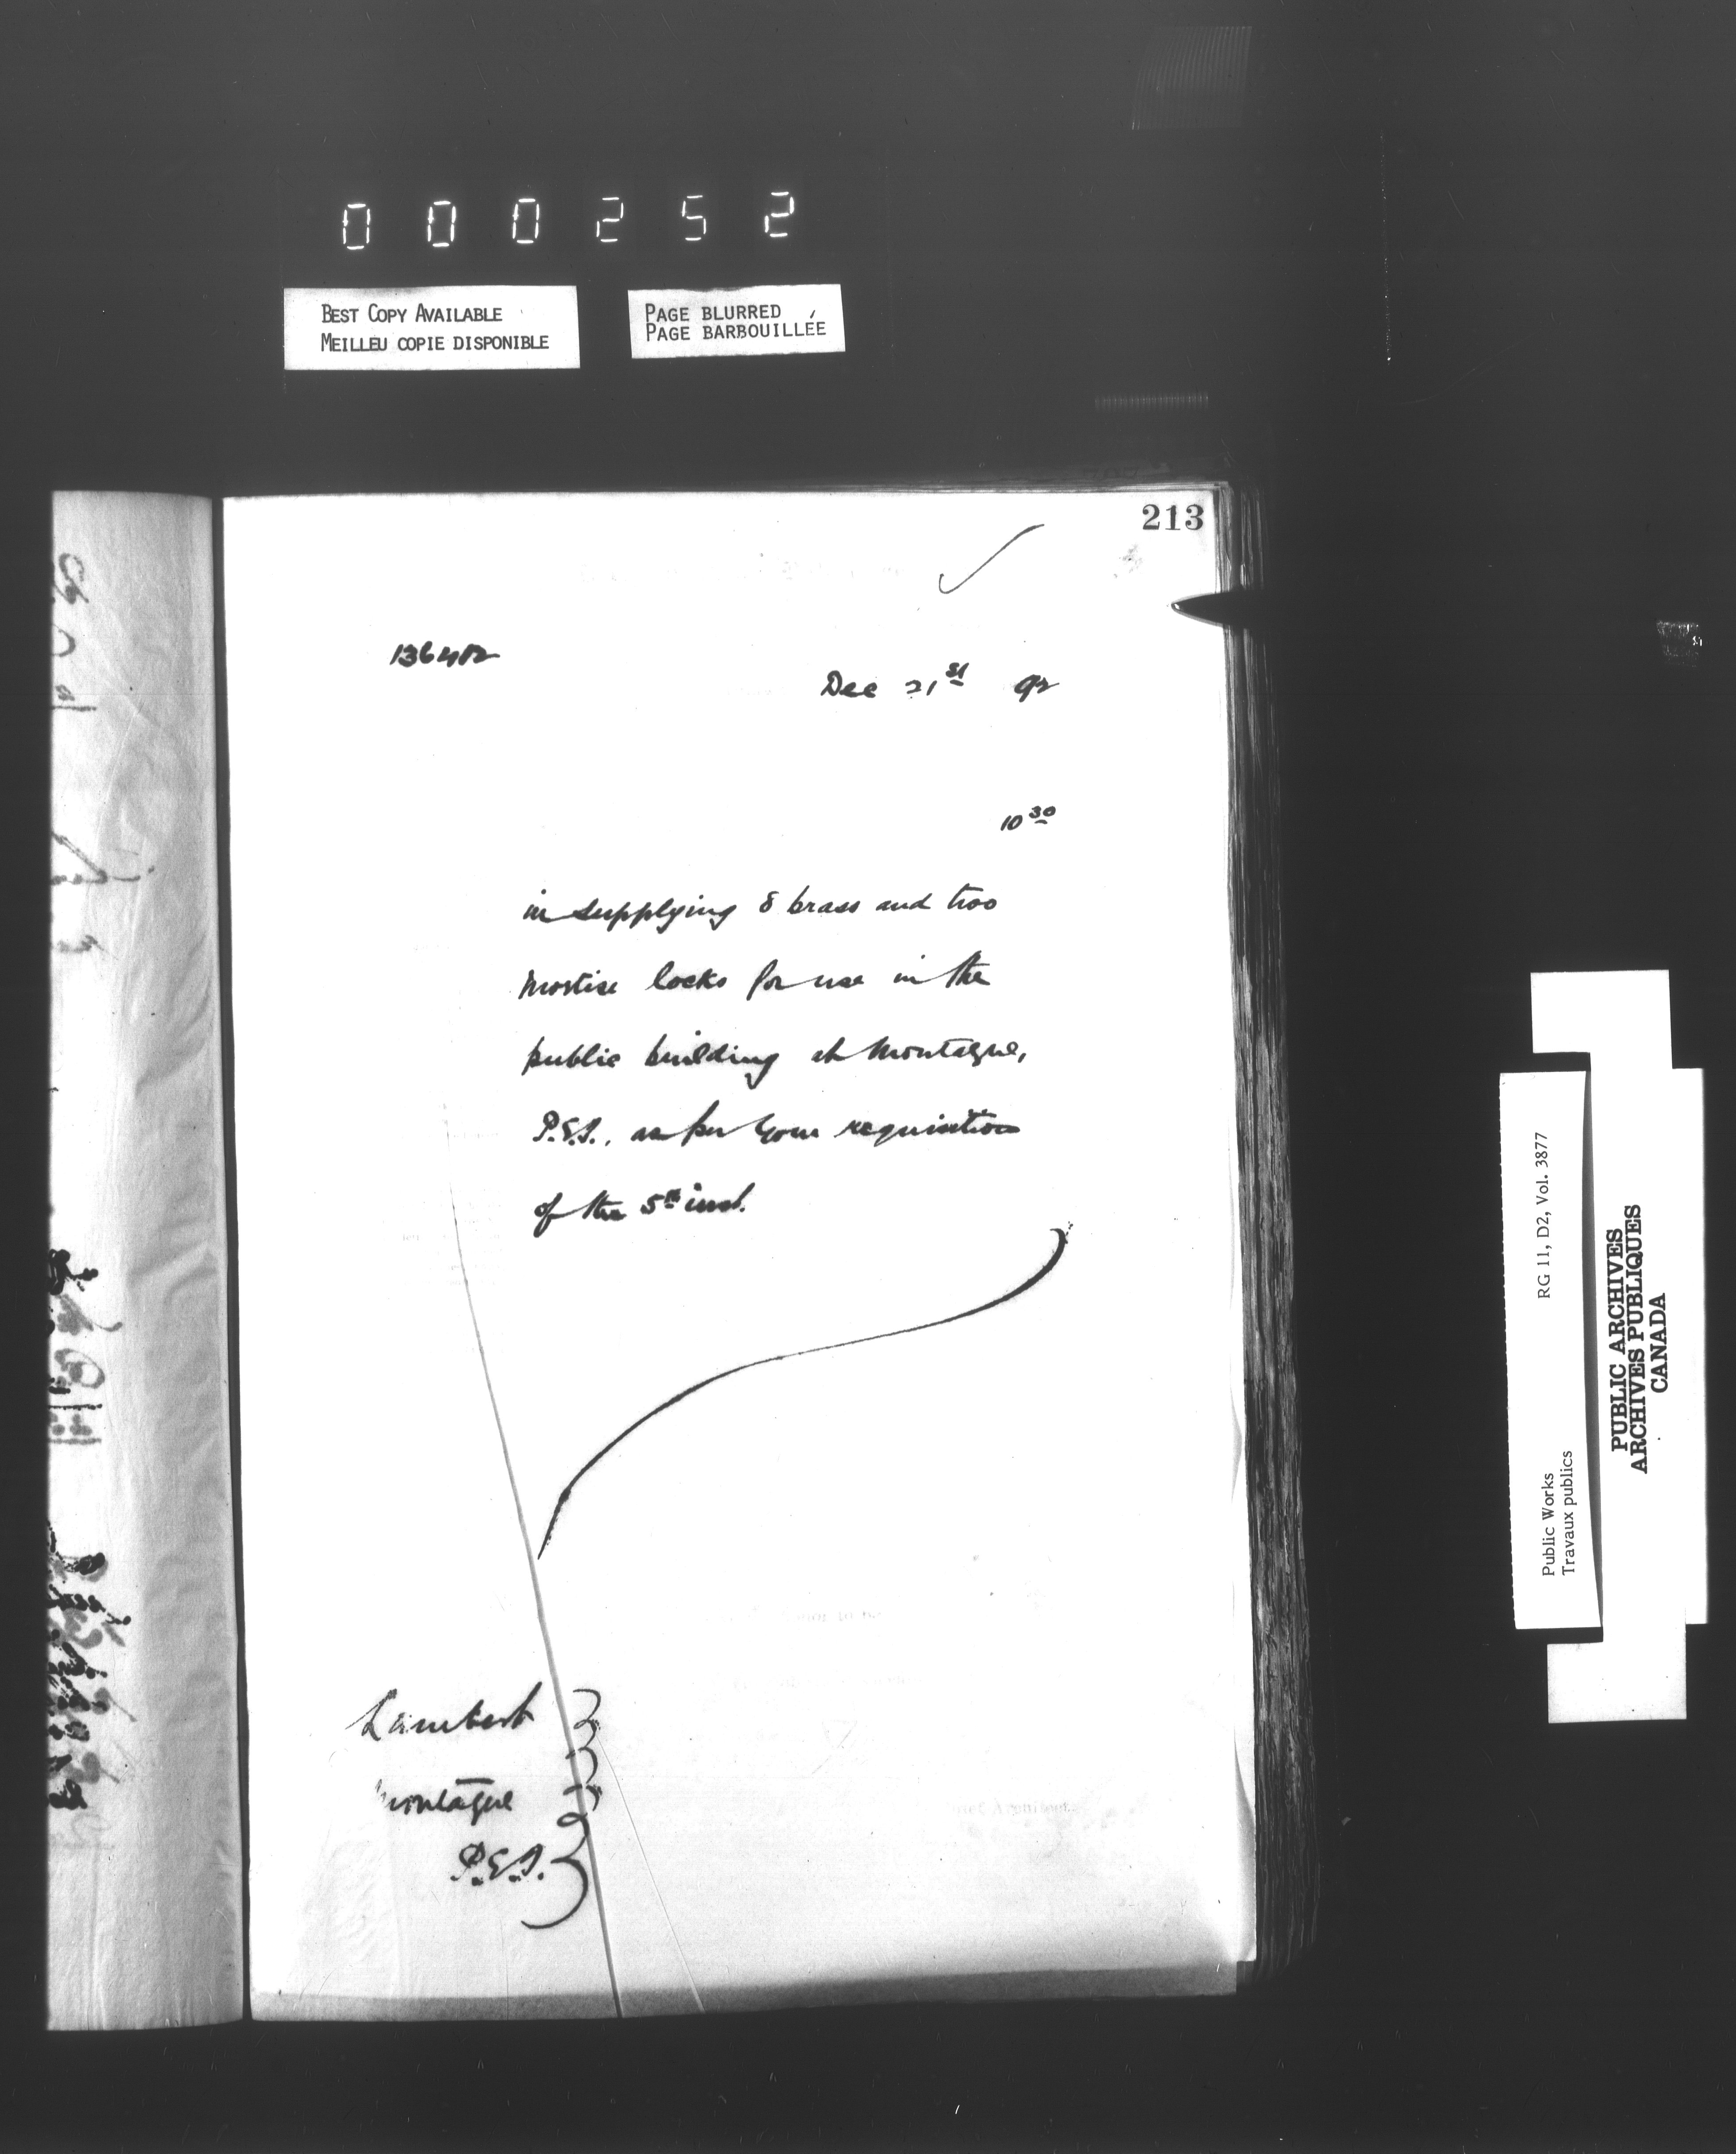 000252
BEST COPY AVAILABLE
MEILLEU COPIE DISPONIBLE
PAGE BLURRED
PAGE BARBOUILLÉE
213
Dec 21st 92
10 30
in supplying 8 brass and two
mortise locks for use in the
public building at Montague,
P.E.I., as per your requisition
of the 5th inst.
Lambert
Montague
P.E.I.
RG 11, D2, Vol. 3877
Public Works
Travaux publics
PUBLIC ARCHIVES
ARCHIVES PUBLIQUES
CANADA